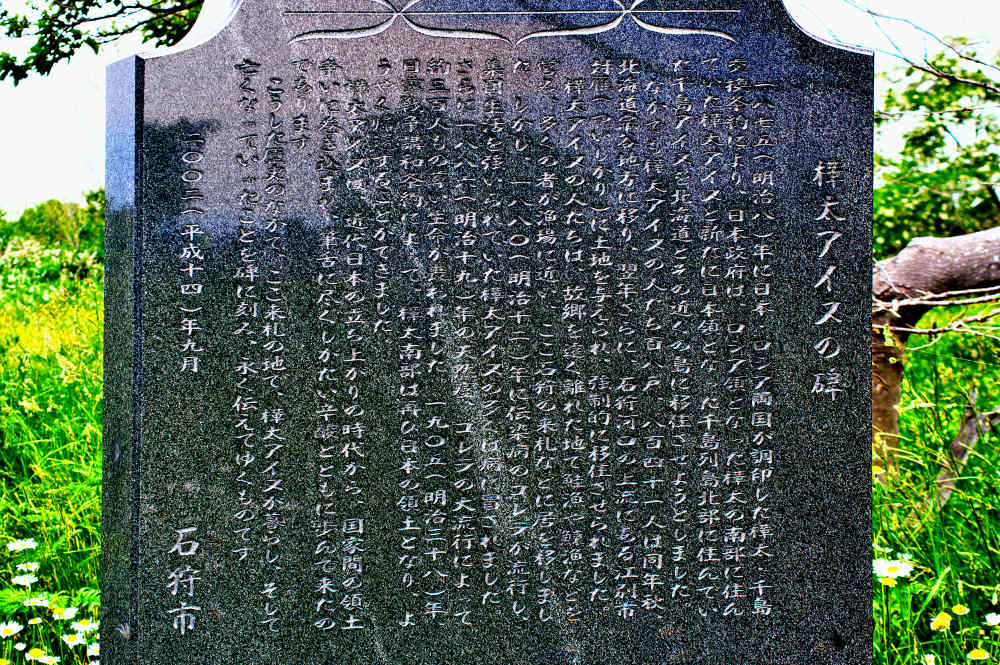 樺太アイヌの碑
一八七五(明治八)年に日本・ロシア両国が調印した樺太・千島
交換条約により、日本政府は、ロシア領となった樺太の南部に住ん
でいた樺太アイヌと新たに日本領となった千島列島北部に住んでい
た千島アイヌを北海道とその近くの島に移住させようとしました。
なかでも樺太アイヌの人たち百八戸、八百四十一人は同年秋、
北海道宗谷地方に移り、翌年さらに、石狩河口の上流にある江別市
対雁(ついしかり)に土地を与えられ、強制的に移住させられました。
樺太アイヌの人たちは、故郷を遠く離れた地で鮭漁や鰊漁などを
営み、多くの者が漁場に近い、ここ石狩の来札などに居を移しまし
た。しかし、一八八〇(明治十三)年に伝染病のコレラが流行し、
集団生活を強いられていた樺太アイヌの多くは病に冒されました。
さらに、一八八六(明治十九)年の天然痘、コレラの大流行によって
約三百人もの尊い生命が奪われました。一九〇五(明治三十八)年、
日露戦争講和条約によって、樺太南部は再び日本の領土となり、よ
うやく帰郷することができました。
樺太アイヌは、近代日本の立ち上がりの時代から、国家間の領土
争いに巻き込まれ、筆舌に尽くしがたい辛酸とともに歩んで来たの
であります。
こうした歴史のなかで、ここ来札の地で、樺太アイヌが暮らし、そして
亡くなっていったことを碑に刻み、永く伝えてゆくものです。
二〇〇二(平成十四)年九月
石狩市